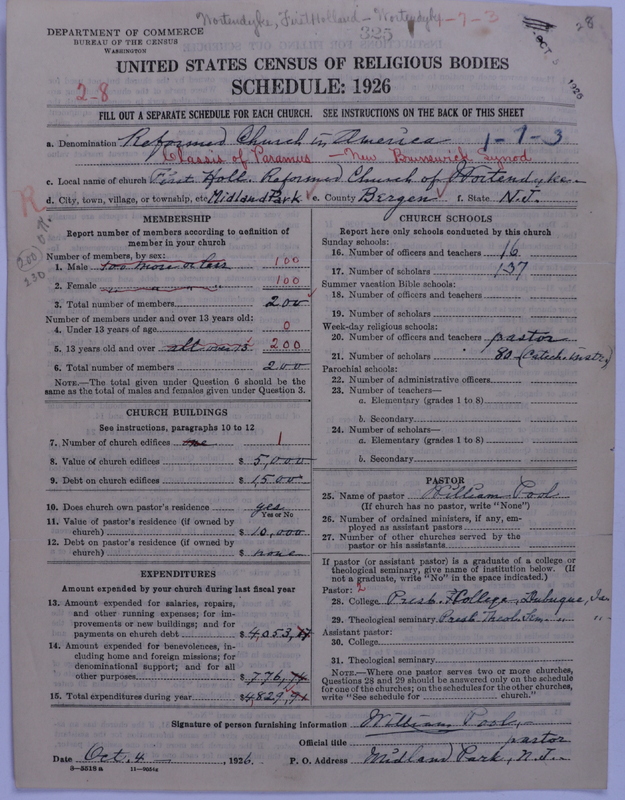 Wortendyke, First Holland - Wortendyke 1-7-3
325
28
OCT 5 1926
DEPARTMENT OF COMMERCE
BUREAU OF THE CENSUS
WASHINGTON
UNITED STATES CENSUS OF RELIGIOUS BODIES
SCHEDULE: 1926
2-8
FILL OUT A SEPARATE SCHEDULE FOR EACH CHURCH. SEE INSTRUCTIONS ON THE BACK OF THIS SHEET
a. Denomination Reformed Church in America 1-7-3
Classis of Paramus - New Brunswick Synod
c. Local name of church First Holl. Reformed Church of Wortendyke
d. City, town, village, or township, etc Midland Park e. County Bergen f. State N.J.
R
MEMBERSHIP
Report number of members according to definition of
member in your church
Number of members, by sex:
1. Male 100 more or less 100
2. Female 100
3. Total number of members 200
Number of members under and over 13 years old:
4. Under 13 years of age 0
5. 13 years old and over all over 13 200
6. Total number of members 200
NOTE.—The total given under Question 6 should be the
same as the total of males and females given under Question 3.
CHURCH BUILDINGS
See instructions, paragraphs 10 to 12
7. Number of church edifices one 1
8. Value of church edifices $ 5,000
9. Debt on church edifices $ 1500
10. Does church own pastor's residence yes
Yes or No
11. Value of pastor's residence (if owned by
church) $ 10,000
12. Debt on pastor's residence (if owned by
church) $ none
EXPENDITURES
Amount expended by your church during last fiscal year
13. Amount expended for salaries, repairs,
and other running expenses; for im-
provements or new buildings; and for
payments on church debt $ 4,053,17
14. Amount expended for benevolences, in-
cluding home and foreign missions; for
denominational support; and for all
other purposes $ 776,74
15. Total expenditures during year $ 4829,91
CHURCH SCHOOLS
Report here only schools conducted by this church
Sunday schools:
16. Number of officers and teachers 16
17. Number of scholars 137
Summer vacation Bible schools:
18. Number of officers and teachers
19. Number of scholars
Week-day religious schools:
20. Number of officers and teachers pastor
21. Number of scholars 80 (Catech. instr.)
Parochial schools:
22. Number of administrative officers
23. Number of teachers—
a. Elementary (grades 1 to 8)
b. Secondary
24. Number of scholars—
a. Elementary (grades 1 to 8)
b. Secondary
PASTOR
25. Name of pastor William Pool
(If church has no pastor, write "None")
26. Number of ordained ministers, if any, em-
ployed as assistant pastors
27. Number of other churches served by the
pastor or his assistants
If pastor (or assistant pastor) is a graduate of a college or
theological seminary, give name of institution below. (If
not a graduate, write "No" in the space indicated.)
Pastor: 2
28. College Presb. College, Dubuque, Ia
29. Theological seminary Presb. Theol. Sem. " "
Assistant pastor:
30. College
31. Theological seminary
NOTE.—Where one pastor serves two or more churches,
Questions 28 and 29 should be answered only on the schedule
for one of the churches; on the schedules for the other churches,
write "See schedule for church."
Signature of person furnishing information William Pool
Official title pastor
Date Oct. 4, 1926. P. O. Address Midland Park, N.J.
8—5518 a 11—9054